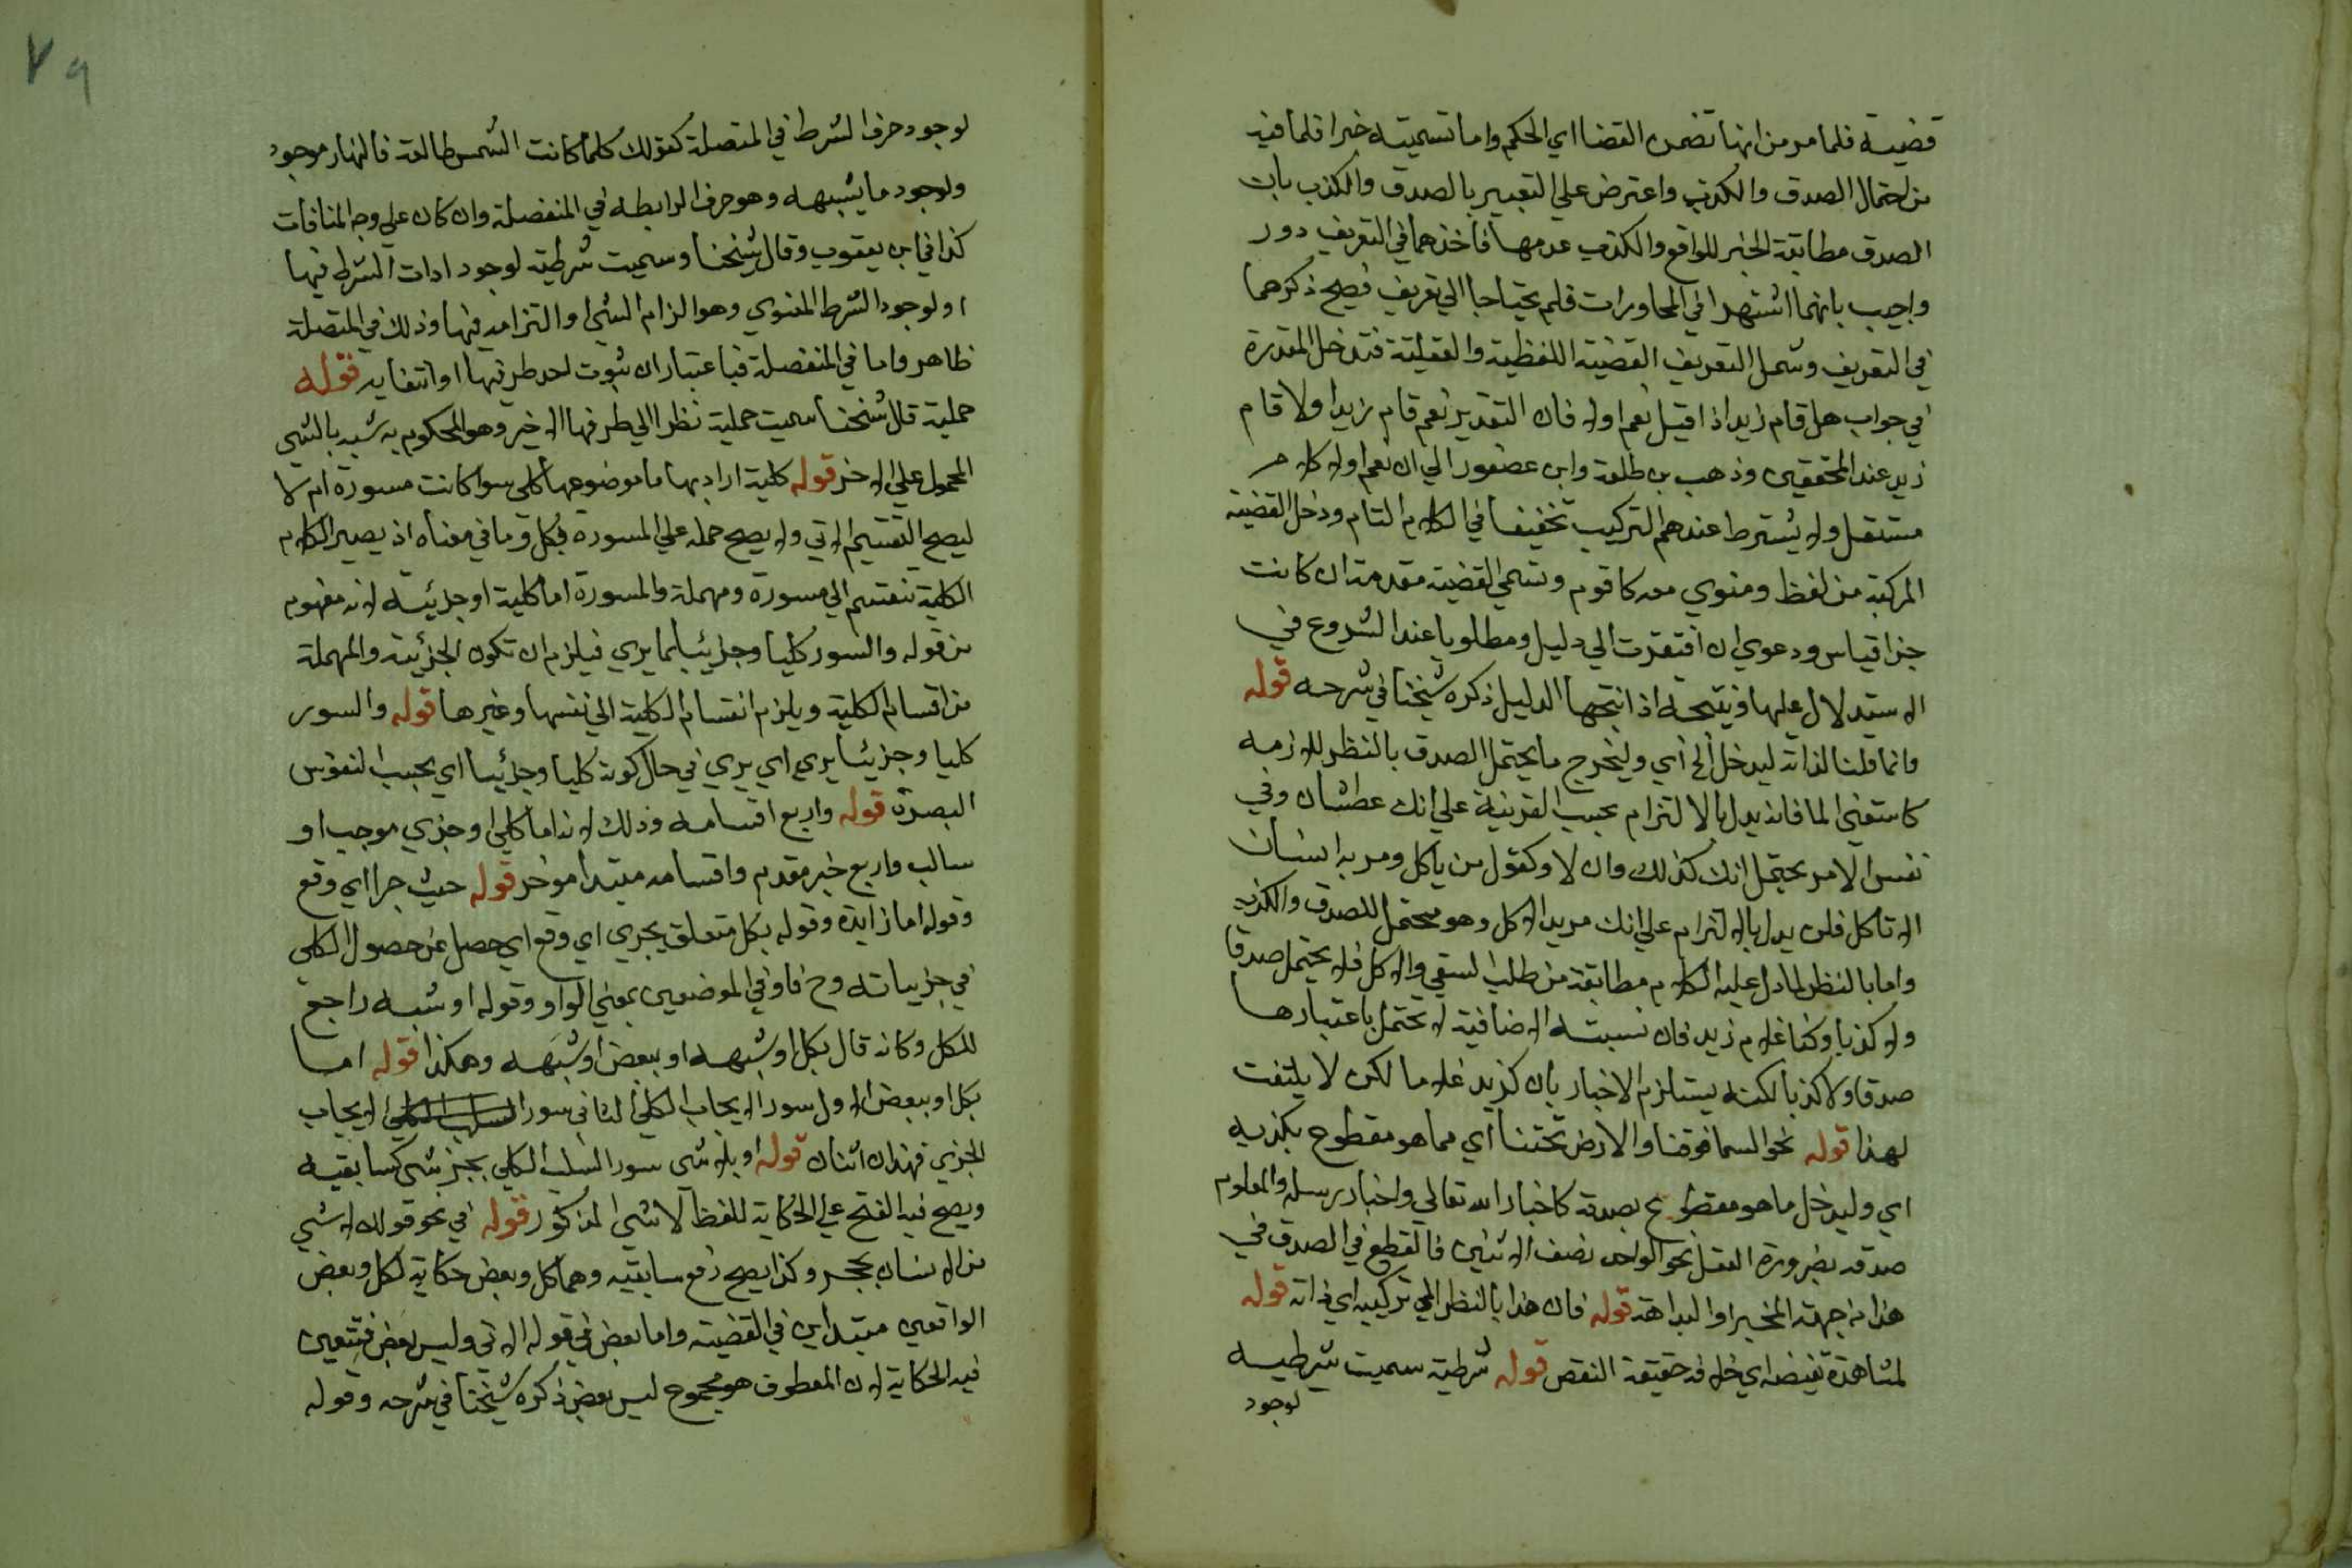 قضية فلما مر من انها تضمن القضا اي الحكم واما تسميته خبرا فلما فيه
من احتمال الصدق والكذب واعترض علي التعبير بالصدق والكذب بان
الصدق مطابقة الخبر للواقع والكذب عدمها فاخذهما في التعريف دور
واجيب بانهما اشتهرا في المحاورات فلم يحتاجا الي تعريف فصح ذكرهما
في التعريف وشمل التعريف القضية اللفظية والعقلية فتدخل المقدرة
في جواب هل قام زيد اذا قيل نعم اولا فان التقدير نعم قام زيد اولا قام
زيد عند المحققين وذهب بن طلحة وابن عصفور الي ان نعم اولا كلام
مستقل ولا يشترط عندهم التركيب تخفيفا في الكلام التام ودخل القضية
المركبة من لفظ ومنوي معه كاقوم وتسمي القضية مقدمة ان كانت
جزا قياس ودعوي ان افتقرت الي دليل ومطلوبا عند الشروع في
الاستدلال عليها ونتيجة اذا انتجها الدليل ذكره شيخنا في شرحه قوله
وانما قلنا لذاته ليدخل الخ اي وليخرج ما يحتمل الصدق بالنظر للازمه
كاستقني الما فانه يدل بالالتزام بحسب القرينة علي انك عطشان وفي
نفس الامر يحتمل انك كذلك وان لا وكقول من ياكل ومر به انسان
الا تاكل فلن يدل بالالتزام علي انك مريد الاكل وهو محتمل للصدق والكذب
واما بالنظر لما دل عليه الكلام مطابقة من طلب السقي والاكل فلا يحتمل صدقا
ولا كذبا وكذا غلام زيد فان نسبته الاضافية لا تحتمل باعتبارها
صدقا ولا كذبا لكنه يستلزم الاخبار بان لزيد غلاما لكن لا يلتفت
لهذا قوله نحو السما فوقنا والارض تحتنا اي مما هو مقطوع بكذبه
اي وليدخل ما هو مقطوع بصدقه كاخبار الله تعالي واخبار رسله والمعلوم
صدقه بضرورة العقل نحو الواحد نصف الاثنين فالقطع في الصدق في
هذا من جهة المخبر او البداهة قوله فان هذا بالنظر الي تركيبه اي ذاته قوله
لمشاهدة نقيضه اي خلافه حقيقة النقص قوله شرطية سميت شرطيه
لوجود
٧٩
لوجود حرف الشرط في المتصلة كقولك كلما كانت الشمس طالعة فالنهار موجود
ولوجود ما يشبهه وهو حرف الرابطه في المنفصلة وان كان علي وجه المنافات
كذا في ابن يعقوب وقال شيخنا وسميت شرطية لوجود ادات الشرط فيها
اولوجود الشرط المعنوي وهو الزام الشي او التزامه فيها وذلك في المتصلة
ظاهر واما في المنفصلة فباعتبار ان ثبوت احد طرفيها او انتفايه قوله
حملية قال شيخنا سميت حملية نظرا الي طرفها الاخير وهو المحكوم به شبه بالشي
المحمول علي الاخر قوله كلية اراد بها ما موضوعها كلي سوا كانت مسورة ام لا
ليصح التقسيم الاتي ولا يصح حمله علي المسورة بكل وما في معناه اذ يصير الكلام
الكلية تنقسم الي مسورة ومهملة والمسورة اما كلية او جزئيه لانه مفهوم
من قوله والسور كليا وجزئيا يري فيلزم ان تكون الجزئية والمهملة
من اقسام الكلية ويلزم انقسام الكلية الي نفسها وغيرها قوله والسور
كليا وجزئيا يري اي يري في حال كونه كليا وجزئيا اي بحسب النفوس
البصرة قوله واربع اقسامه وذلك لانه اما كلي او جزي موجب او
سالب واربع خبر مقدم واقسامه مبتدا موخر قوله حيث جرا اي وقع
وقوله اما زايدة وقوله بكل متعلق بجري اي وقع اي حصل عن حصول الكلي
في جزيياته وح فاو في الموضعين بمعني الواو وقوله او شبه راجع
للكل وكانه قال بكل او شبهه او ببعض او شبهه وهكذا قوله اما
بكل او ببعض الاول سور الايجاب الكلي الثاني سور الايجاب
الجزي فهذان اثنان قوله او بلا شي سور السلب الكلي بجز شي كسابقيه
ويصح فيه الفتح علي الحكاية للفظ لا شي المذكور قوله في نحو قولك لا شي
من الانسان بحجر وكذا يصح رفع سابقيه وهما كل وبعض حكاية لكل وبعض
الواقعين مبتداين في القضية واما بعض في قوله الاتي وليس بعض فتتعين
فيه الحكاية لان المعطوف هو مجموع ليس بعض ذكره شيخنا في شرحه وقوله